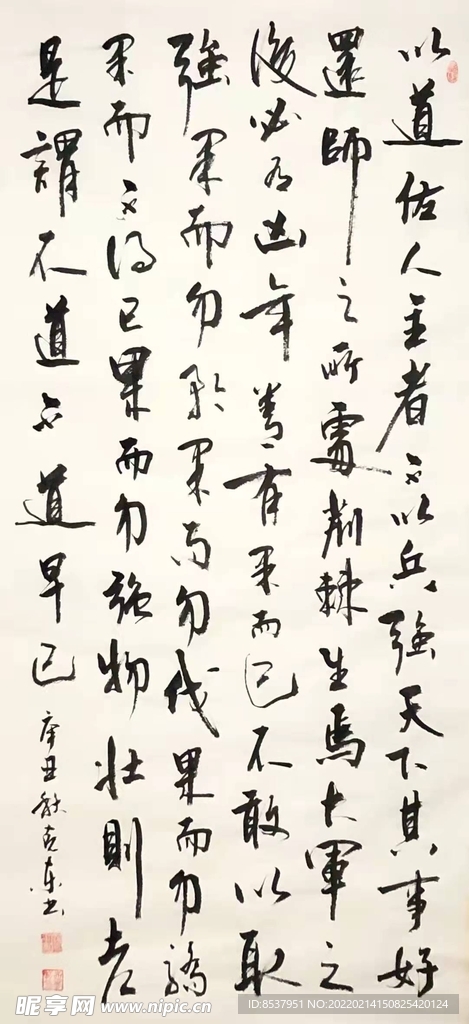 以道佐人主者不以兵強天下其事好
還師之所處荊棘生焉大軍之
後必有凶年善有果而已不敢以取
強果而勿矜果而勿伐果而勿驕
果而不得已果而勿強物壯則老
是謂不道不道早已
辛丑秋克東书
昵享网 www.nipic.cn
ID:8537951 NO:20220214150825420124